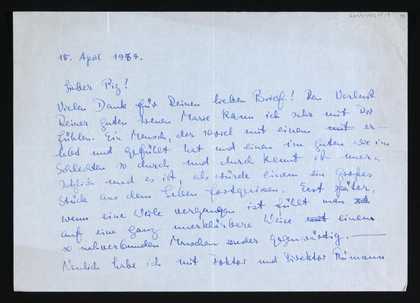 15. April 1984.
Lieber Pig!
Vielen Dank für Deinen lieben Brief! Den Verlust
Deiner guten Marie kann ich sehr mit Dir
fühlen. Ein Mensch, der soviel mit einem er-
lebt und gefühlt hat und einen im Guten wie im
Schlechten so durch und durch kennt ist uner-
setzlich und es ist, als würde einem ein großes
Stück aus dem Leben fortgerissen. Erst später,
wenn eine Weile vergangen ist fühlt man
auf eine ganz unerklärbare Weise einen
so nahverbundenen Menschen wieder gegenwärtig.
Neulich habe ich mit Doktor und Direktor